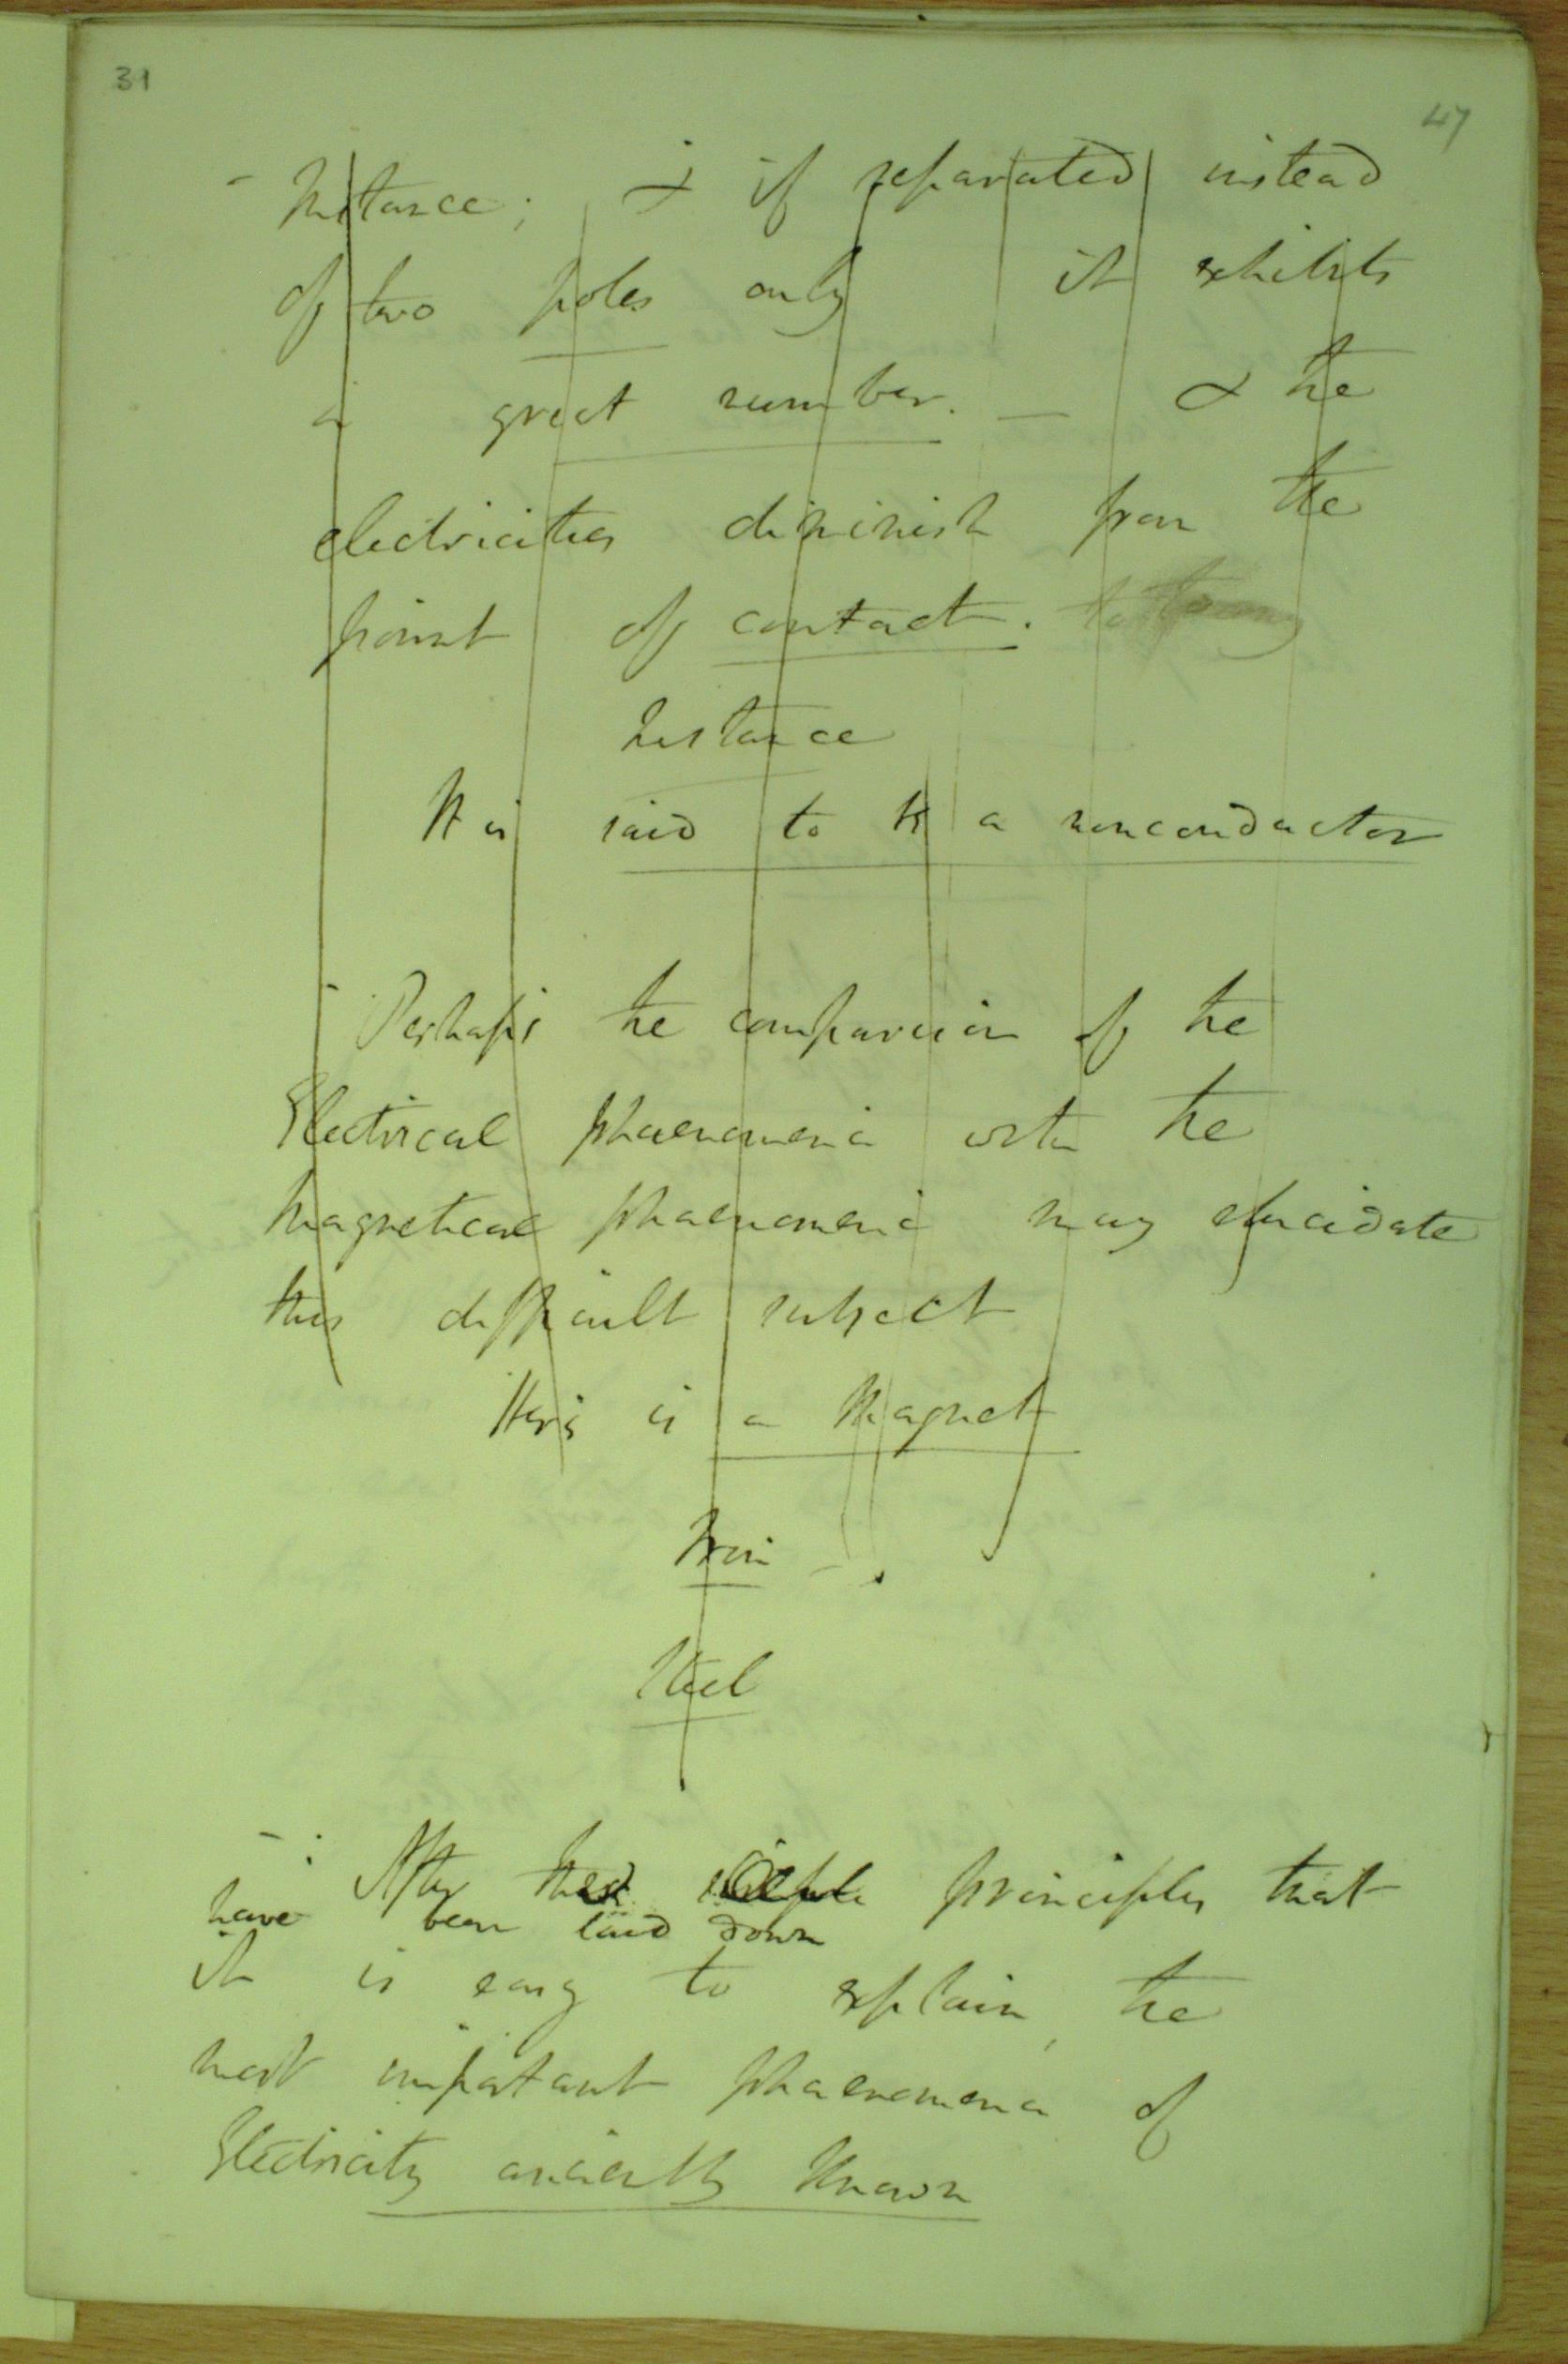 31
47
- Instance; & if separated instead
of two poles only it exhibits
a great number. — & the
electricities diminish from the
point of contact.
Instance
It is said to be a nonconductor
- Perhaps the comparison of the
Electrical phaenomena with the
magnetical phaenomena may elucidate
this difficult subject
Here is a Magnet
Iron -.
Steel
-: After these simple principles that
have been laid down
it is easy to explain, the
most important phaenomena of
Electricity anciently known